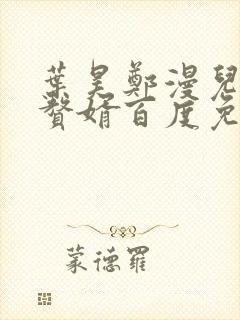 葉昊鄭漫兒
贅婿百度免
蒙德羅